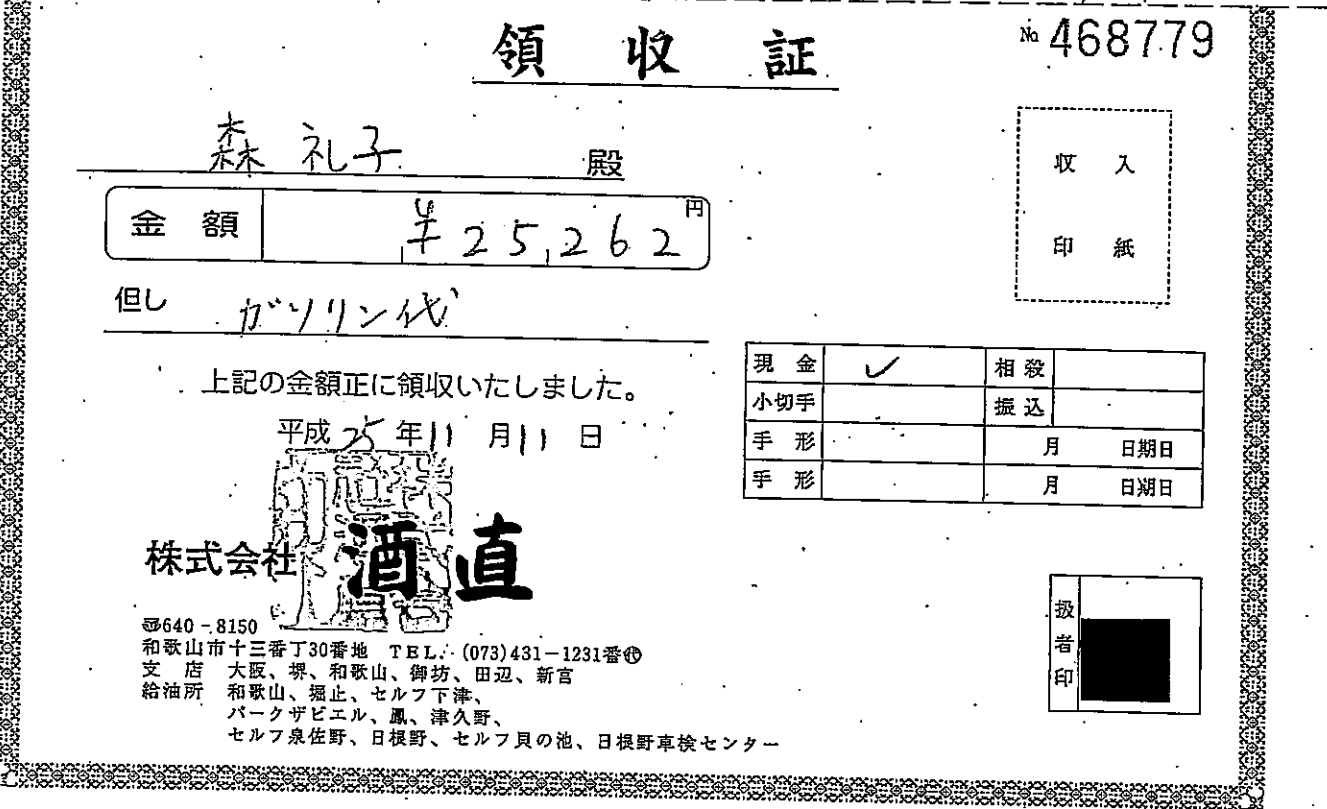 領収証
№ 468779
森 礼子 殿
収入
印紙
金額 ¥25,262 円
但し ガソリン代
上記の金額正に領収いたしました。
平成25年11月11日
現金 ✓ 相殺
小切手 振込
手形 月 日期日
手形 月 日期日
株式会社 酒直
〠640-8150
和歌山市十三番丁30番地 TEL.(073)431-1231番㈹
支店 大阪、堺、和歌山、御坊、田辺、新宮
給油所 和歌山、堀止、セルフ下津、
パークザビエル、鳳、津久野、
セルフ泉佐野、日根野、セルフ貝の池、日根野車検センター
扱者印